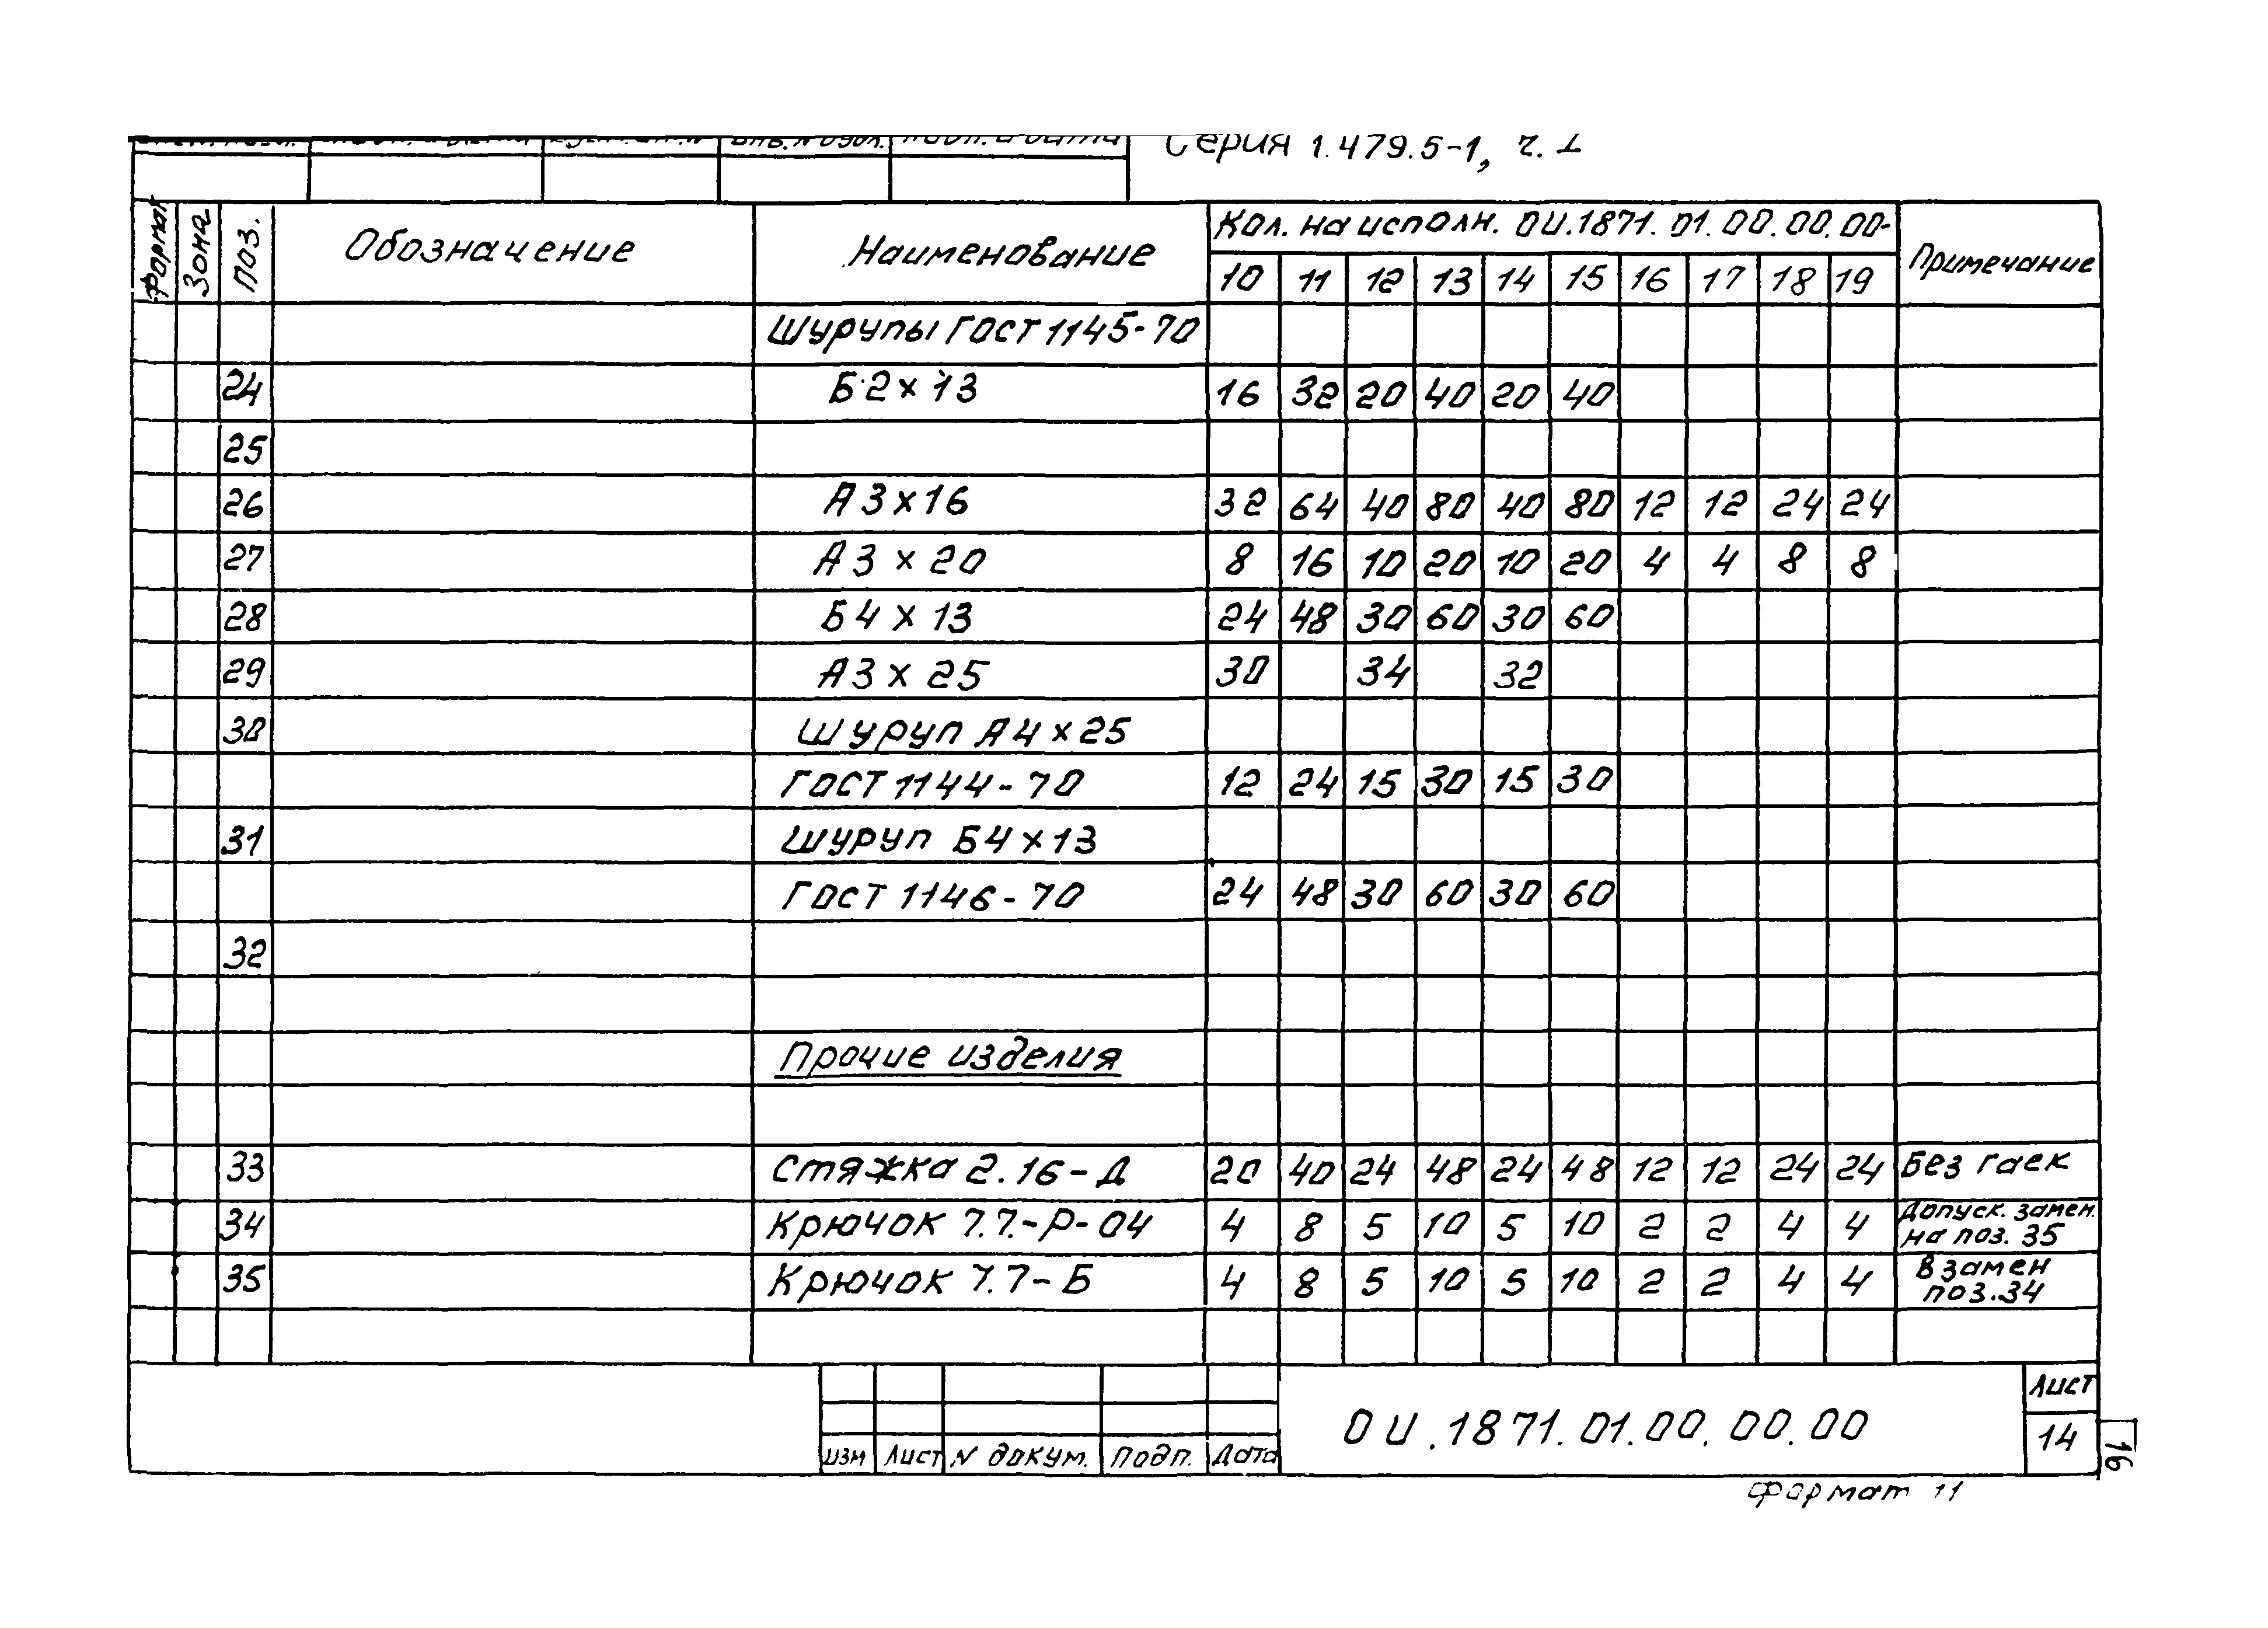 Инв. № дубл. Подп. и дата
Серия 1.479.5-1, ч. 1
Формат Зона Поз. Обозначение Наименование Кол. на исполн. ОИ.1871.01.00.00.00- Примечание
10 11 12 13 14 15 16 17 18 19
Шурупы ГОСТ 1145-70
24 Б 2 х 13 16 32 20 40 20 40
25
26 А 3 х 16 32 64 40 80 40 80 12 12 24 24
27 А 3 х 20 8 16 10 20 10 20 4 4 8 8
28 Б 4 х 13 24 48 30 60 30 60
29 А3 х 25 30 34 32
30 Шуруп А 4 х 25
ГОСТ 1144-70 12 24 15 30 15 30
31 Шуруп Б 4 х 13
ГОСТ 1146-70 24 48 30 60 30 60
32
Прочие изделия
33 Стяжка 2.16-Д 20 40 24 48 24 48 12 12 24 24 Без гаек
34 Крючок 7.7.-Р-04 4 8 5 10 5 10 2 2 4 4 Допуск. замен.
на поз. 35
35 Крючок 7.7-Б 4 8 5 10 5 10 2 2 4 4 Взамен
поз.34
Изм Лист N докум. Подп. Дата
ОИ.1871.01.00.00.00
Лист
14
16
Формат 11